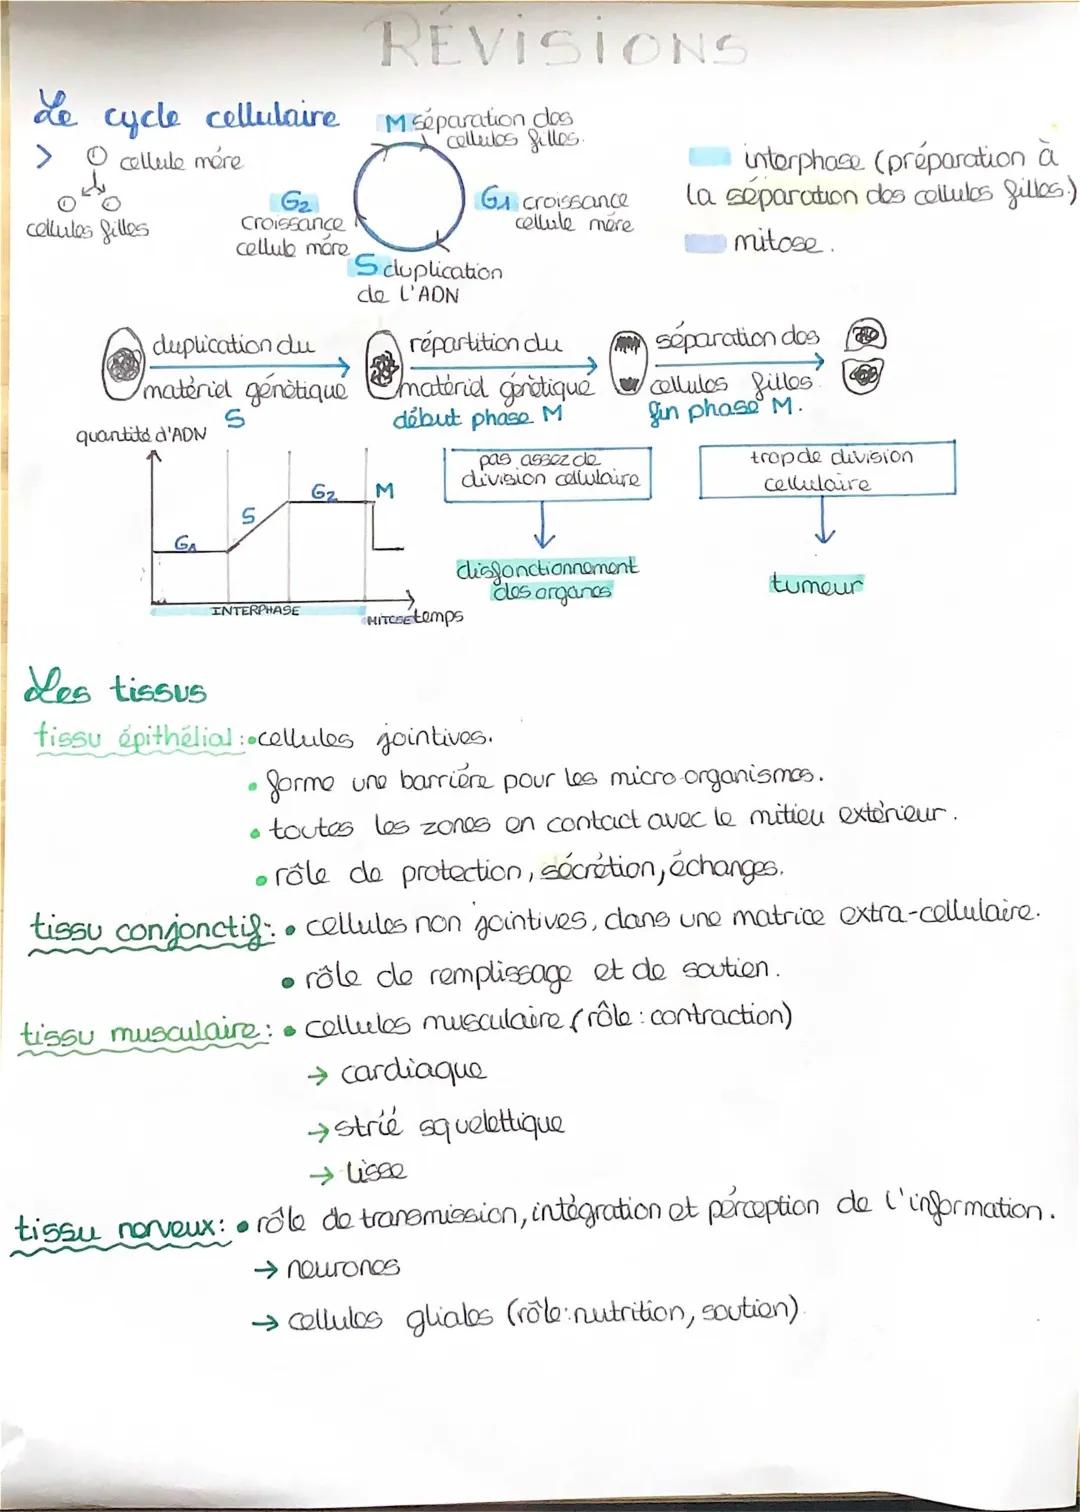 RÉVISIONS
Le cycle cellulaire
> cellule mère
cellules filles
M séparation des
cellules filles.
G2
croissance
cellule mère
G1 croissance
cellule mère
S duplication
de l'ADN
interphase (préparation à
la séparation des cellules filles.)
mitose.
duplication du
matériel génétique
S
répartition du
matériel génétique
début phase M
séparation des
cellules filles.
fin phase M.
quantité d'ADN
G1
S
G2
M
INTERPHASE
MITOSE
temps
pas assez de
division cellulaire
disfonctionnement
des organes
trop de division
cellulaire
tumeur
Les tissus
tissu épithélial : • cellules jointives.
• forme une barrière pour les micro-organismes.
• toutes les zones en contact avec le milieu extérieur.
• rôle de protection, sécrétion, échanges.
tissu conjonctif : • cellules non jointives, dans une matrice extra-cellulaire.
• rôle de remplissage et de soutien.
tissu musculaire : • cellules musculaire (rôle : contraction)
→ cardiaque
→ strié squelettique
→ lisse
tissu nerveux : • rôle de transmission, intégration et pérception de l'information.
→ neurones
→ cellules gliales (rôle : nutrition, soutien).